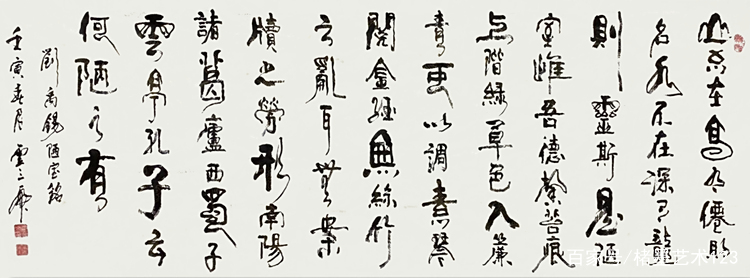 山不在高有僊則
名水不在深有龍
則靈斯是陋
室唯吾德馨苔痕
上階綠草色入簾
青可以調素琴
閱金經無絲竹
之亂耳無案
牘之勞形南陽
諸葛廬西蜀子
雲亭孔子云
何陋之有
劉禹錫陋室銘
壬寅春月
百家号/艺术123